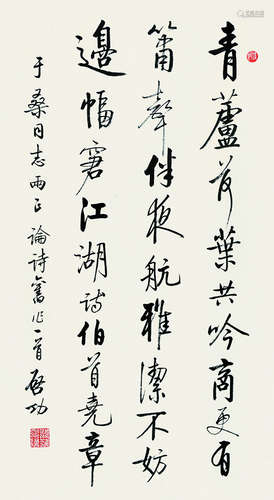 青蘆荷葉共吟商更有
簫聲伴夜航雅潔不妨
邊幅窘江湖詩伯首堯章
于桑同志雨正 論詩舊作一首 啓功